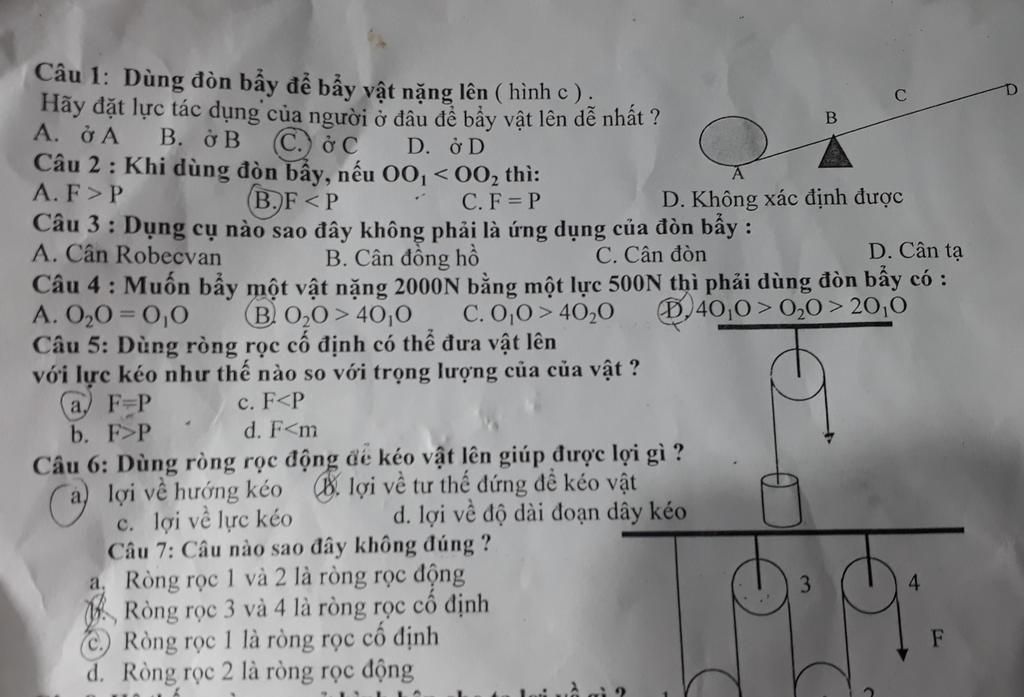 Câu 1: Dùng đòn bẩy để bẩy vật nặng lên ( hình c ) .
Hãy đặt lực tác dụng của người ở đâu để bẩy vật lên dễ nhất ?
A. ở A B. ở B C. ở C D. ở D
A B C D
Câu 2 : Khi dùng đòn bẩy, nếu OO₁ < OO₂ thì:
A. F > P B. F < P C. F = P D. Không xác định được
Câu 3 : Dụng cụ nào sao đây không phải là ứng dụng của đòn bẩy :
A. Cân Robecvan B. Cân đồng hồ C. Cân đòn D. Cân tạ
Câu 4 : Muốn bẩy một vật nặng 2000N bằng một lực 500N thì phải dùng đòn bẩy có :
A. O₂O = O₁O B. O₂O > 4O₁O C. O₁O > 4O₂O D. 4O₁O > O₂O > 2O₁O
Câu 5: Dùng ròng rọc cố định có thể đưa vật lên
với lực kéo như thế nào so với trọng lượng của của vật ?
a. F=P c. F<P
b. F>P d. F<m
Câu 6: Dùng ròng rọc động để kéo vật lên giúp được lợi gì ?
a) lợi về hướng kéo b. lợi về tư thế đứng để kéo vật
c. lợi về lực kéo d. lợi về độ dài đoạn dây kéo
Câu 7: Câu nào sao đây không đúng ?
a. Ròng rọc 1 và 2 là ròng rọc động
b. Ròng rọc 3 và 4 là ròng rọc cố định
c. Ròng rọc 1 là ròng rọc cố định
d. Ròng rọc 2 là ròng rọc động
3 4
F